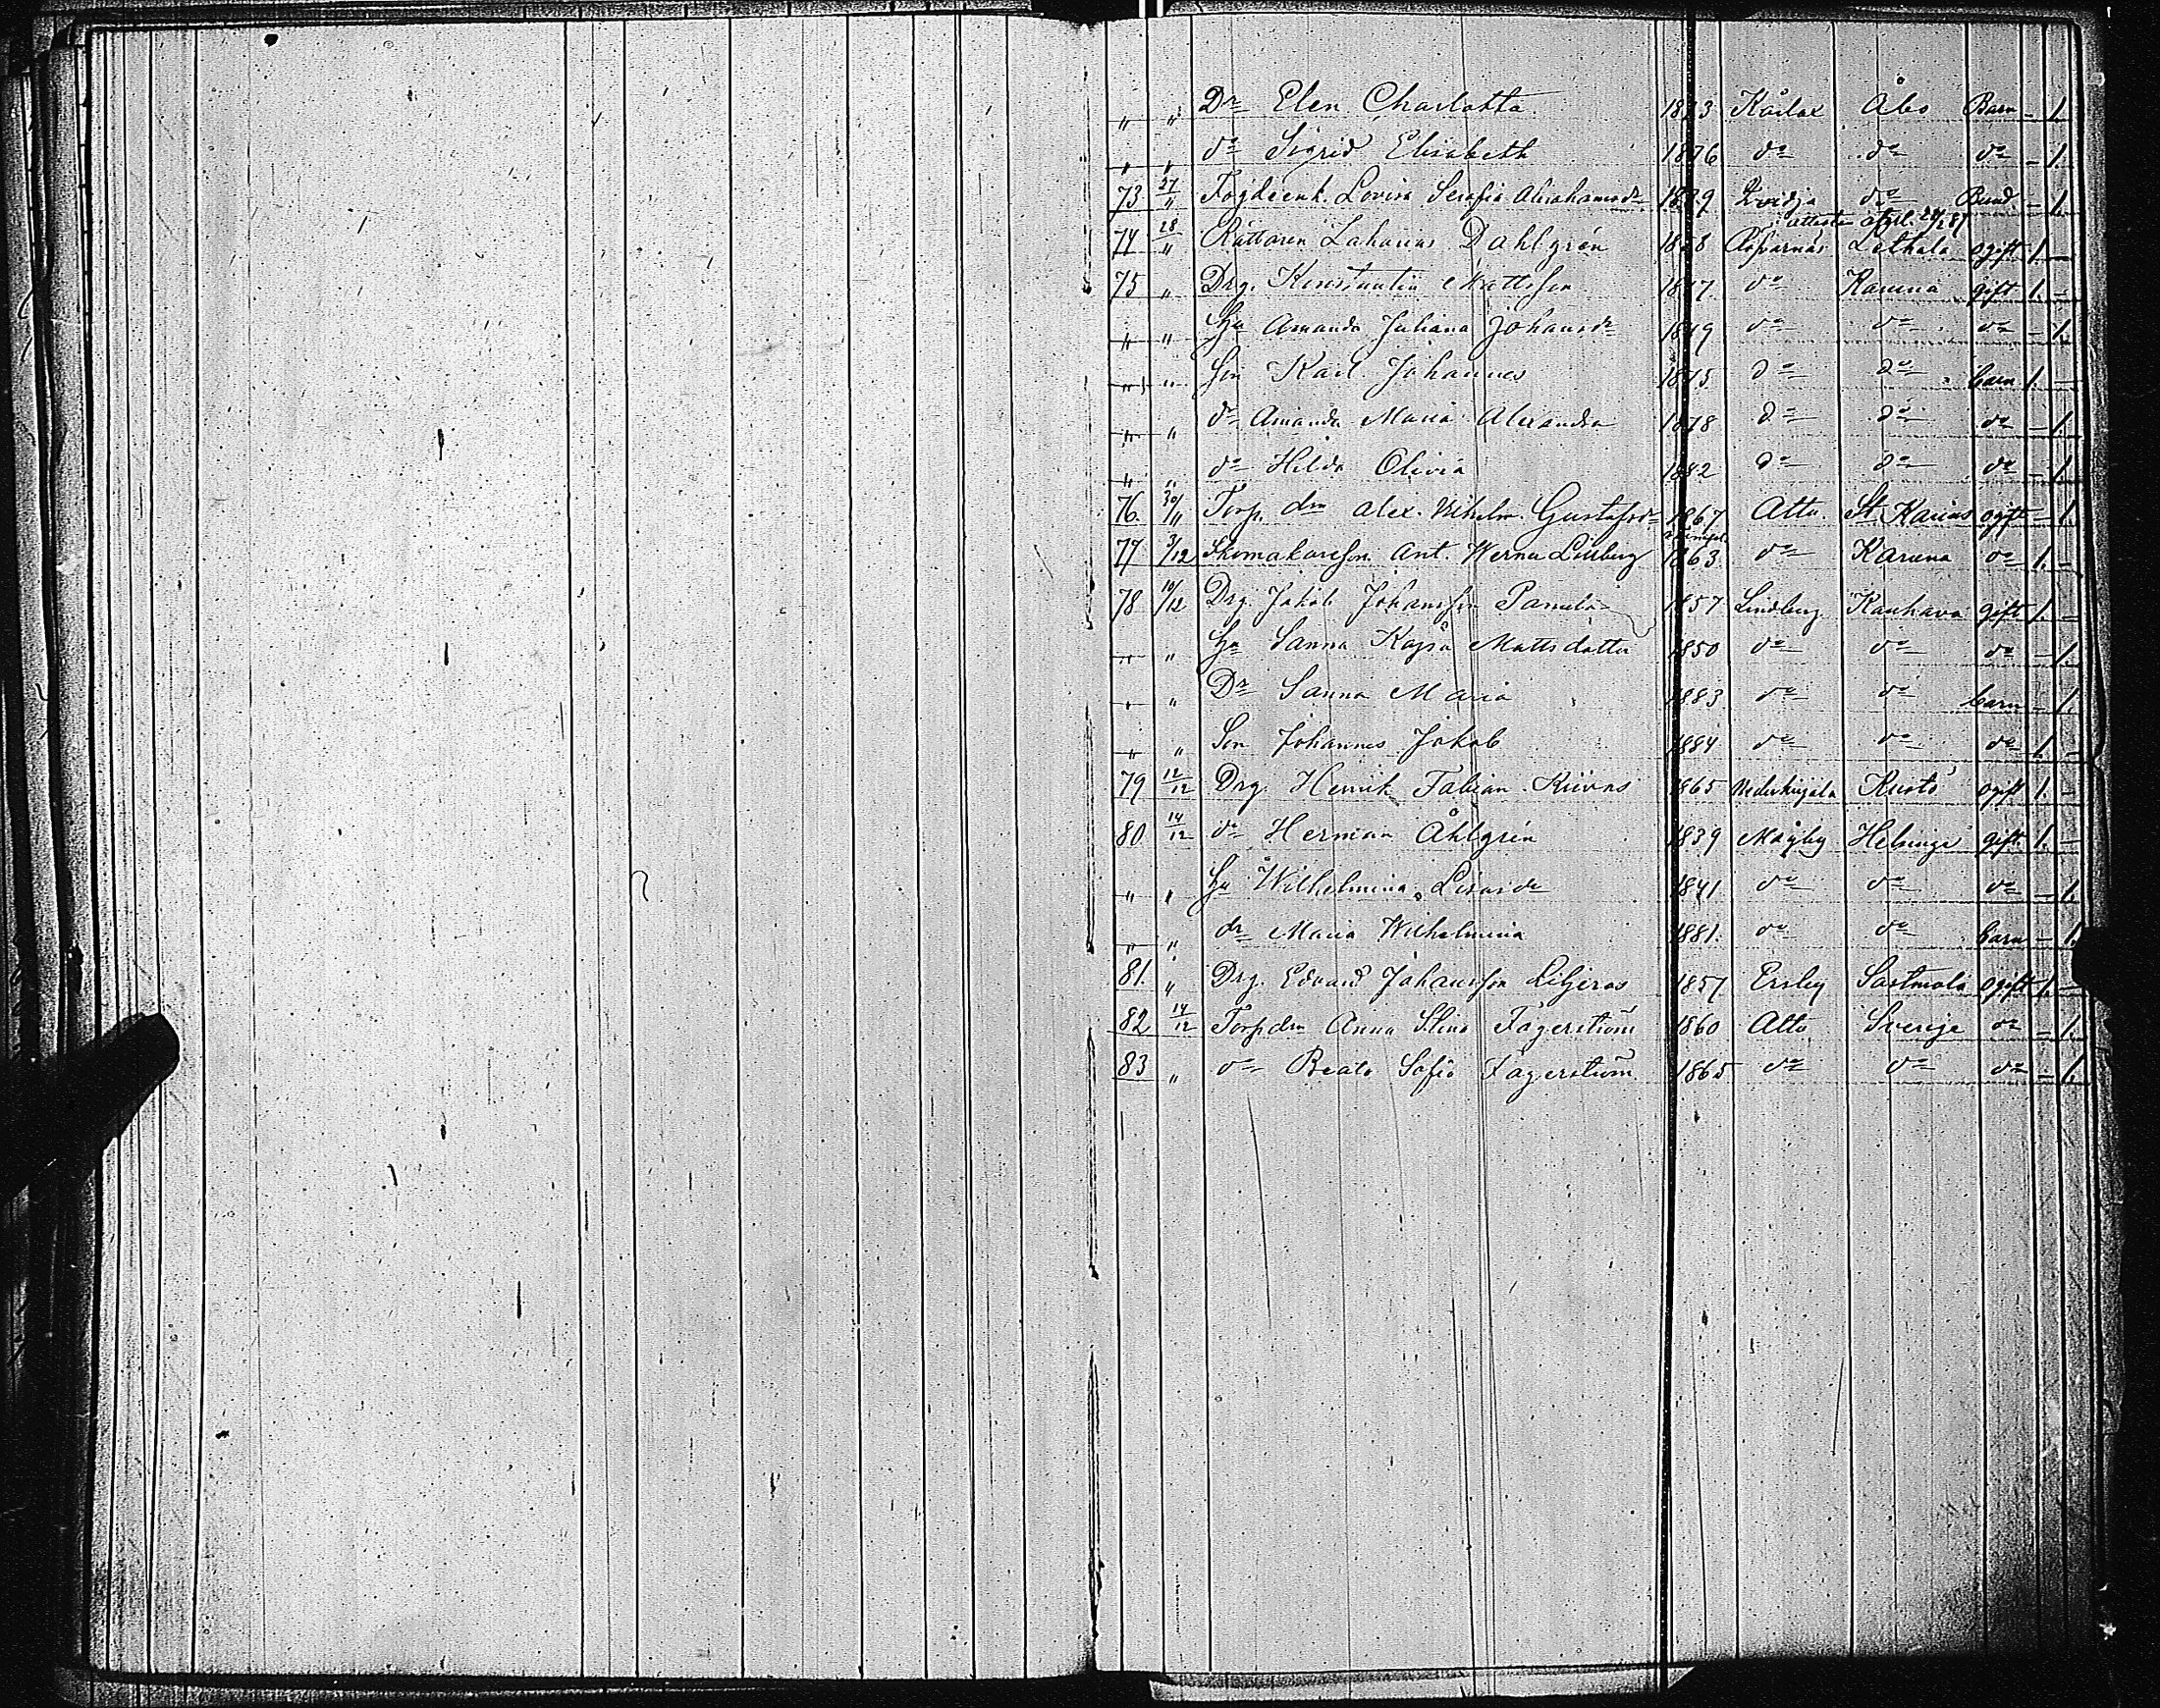 " " Dr Elen Charlotta 1873 Kårlax Åbo Barn - 1.
" " do Sigrid Elisabeth 1876 do do do - 1.
73 27/" Lovisa Serafia Abrahamsdr 1839 Qvidja do - 1.
attesta 24/2 87
74 28/" Rättaren Zaharias Dahlgrén 18 8 Lethala ogift 1. -
75 " Drg. Konstantin Mattsson 1847 do Karuna gift 1. -
" " Hu Amanda Juliana Johansdr 1849 do do do - 1.
" " Son Karl Johannes 1875 do do barn 1. -
" " dr Amanda Maria Alexandra 1878 do do do - 1.
" " do Hilda Olivia 1882 do do do - 1.
76. 30/11 Torp. drn Alex. Wilhelm. Gustafsdr 1867 Attu St Karins ogift - 1.
77 3/12 Skomakareson Ant. Werner 1863 do Karuna do 1. -
78 10/12 Drg. Jakob Johansson 1857 Lindberg Kauhava gift 1. -
" " Hu Sanna Kajsa Mattsdotter 1850 do do do - 1.
" " Dr Sanna Maria 1883 do do barn - 1.
" " Son Johannes Jakob 1884 do do do 1. -
79 12/12 Drg. Henrik Fabian 1865 Nederkirjala Kustö ogift 1. -
80 14/12 do Herman Åhlgrén 1839 Mågby Helsinge gift. 1. -
" " Hu Wilhelmina 1841 do do do - 1.
" " dr Maria Wilhelmina 1881. do do barn - 1.
81. " Drg. Edvard Johansson Liljeros 1857 Ersby Sastmola ogift 1. -
82 14/12 Torpdrn Anna Stina Fagerström 1860 Attu Sverige do - 1.
83 " do Beata Sofia Fagerström 1865 do do do - 1.